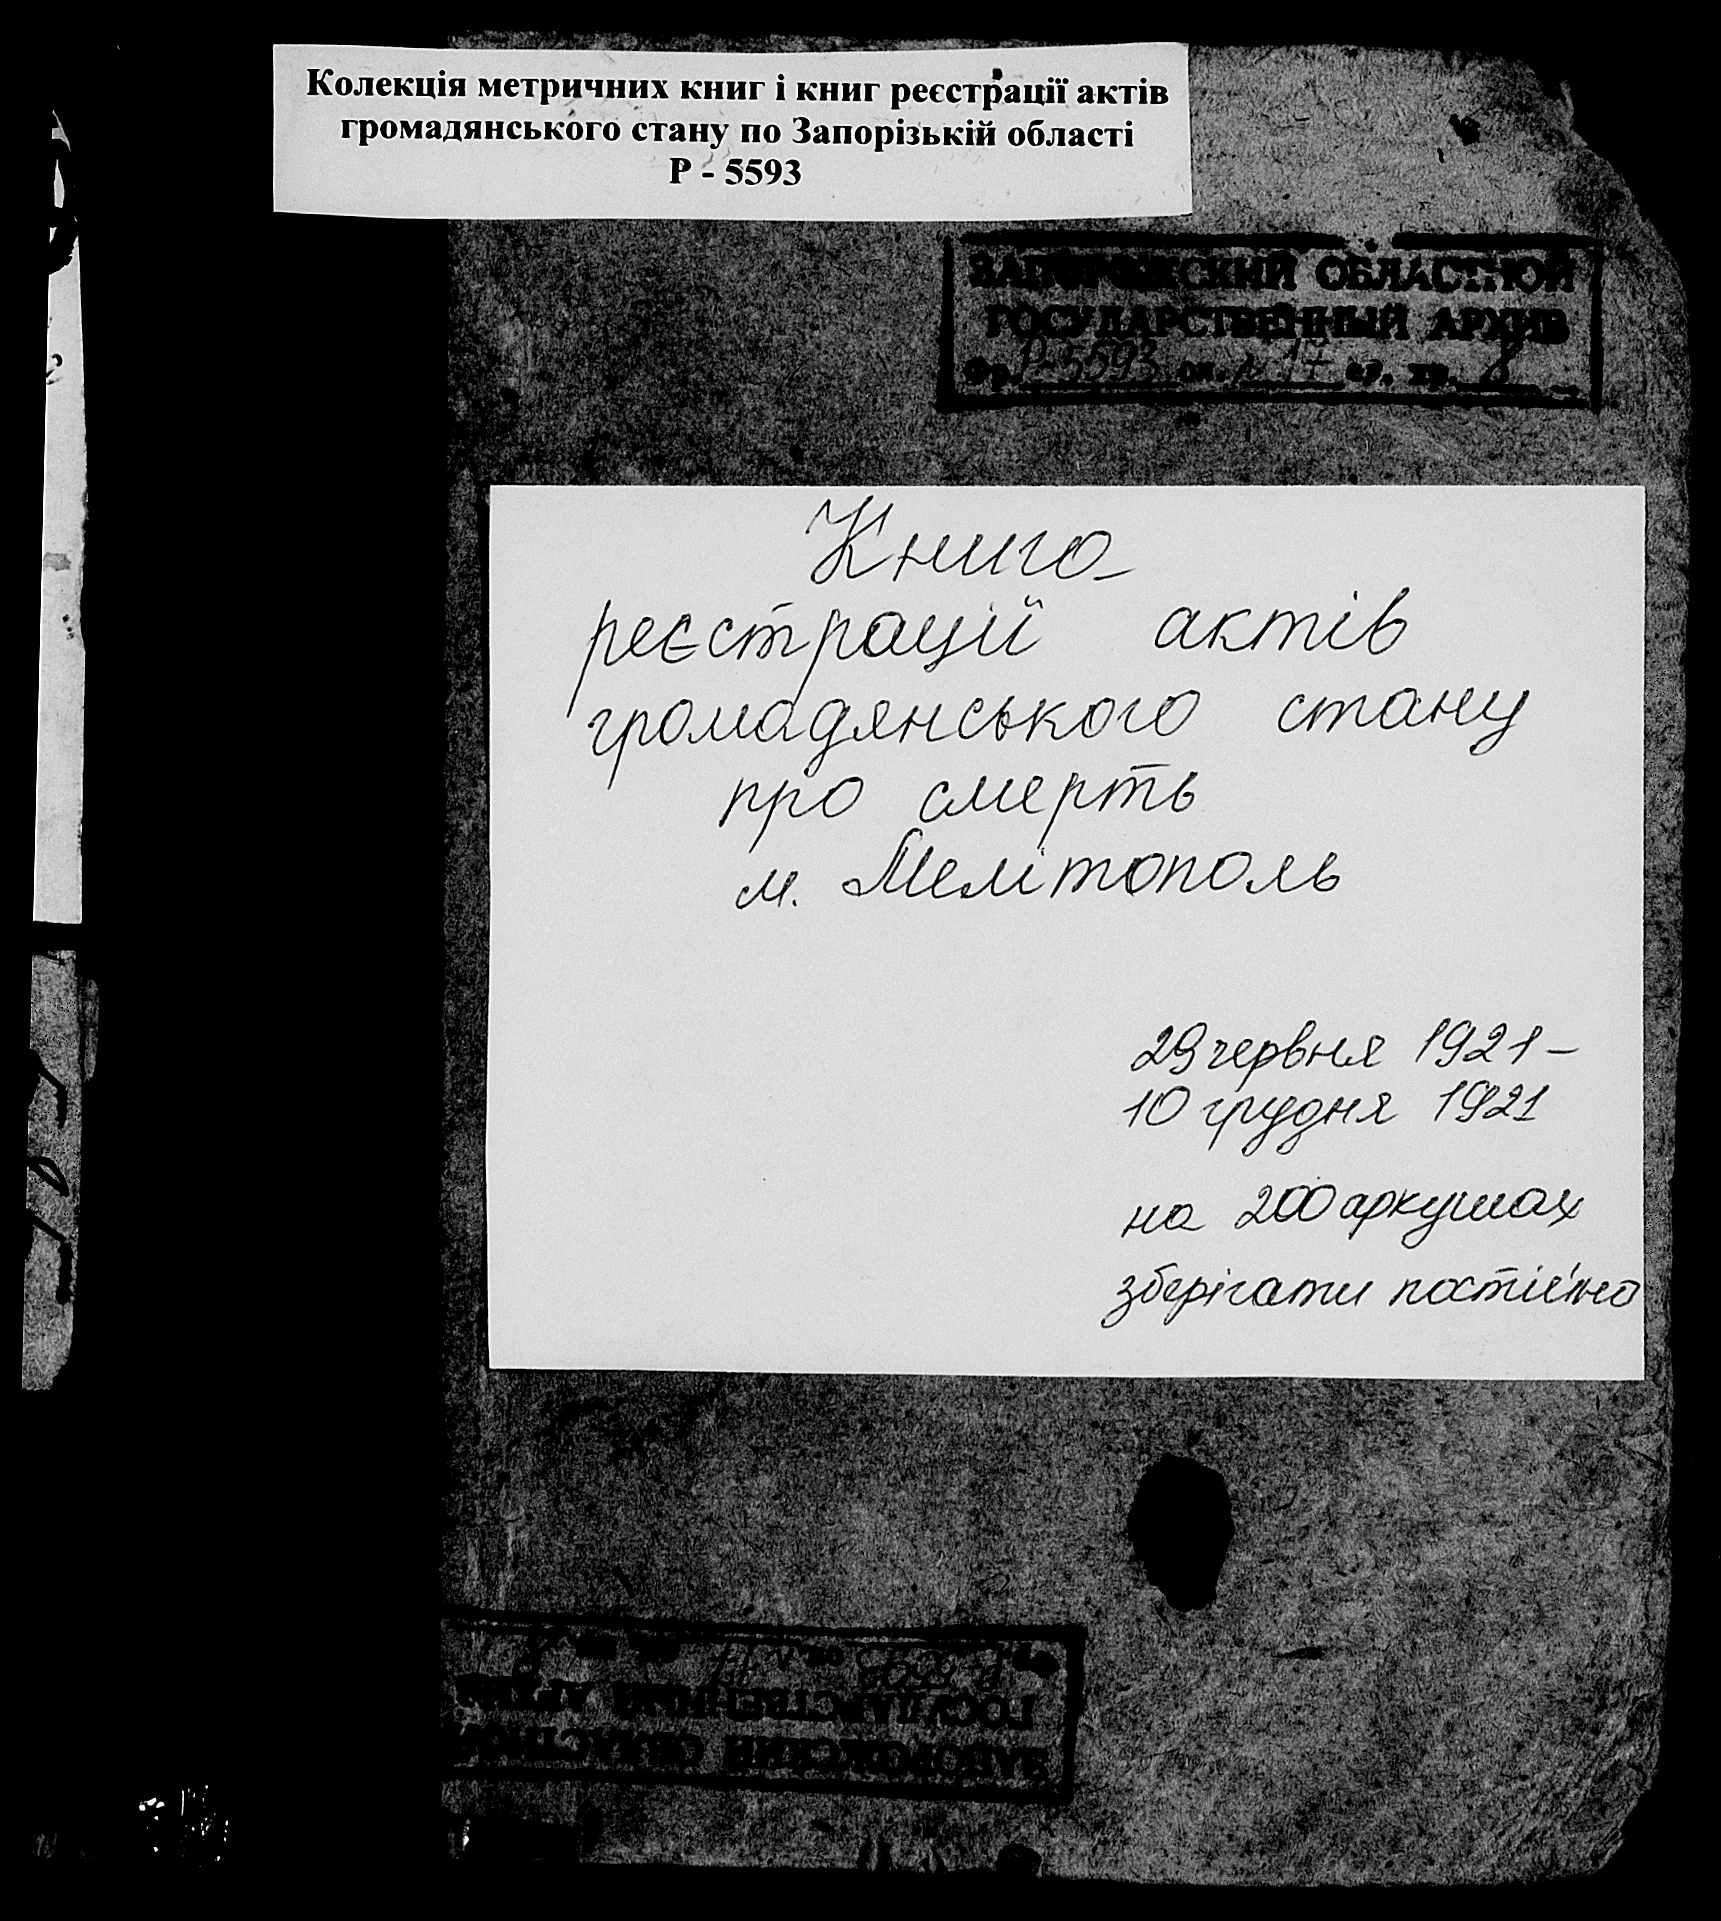 Колекція метричних книг і книг реєстрації актів
громадянського стану по Запорізькій області
Р - 5593
ЗАПОРОЖСКИЙ ОБЛАСТНОЙ
ГОСУДАРСТВЕННЫЙ АРХИВ
Фр. Р-5593 оп. 17 ед. хр. 8
Книга
реєстрації актів
громадянського стану
про смерть
м. Мелітополь
29 червня 1921 –
10 грудня 1921
на 200 аркушах
зберігати постійно
ГОСУДАРСТВЕННЫЙ АРХИВ
ЗАПОРОЖСКИЙ